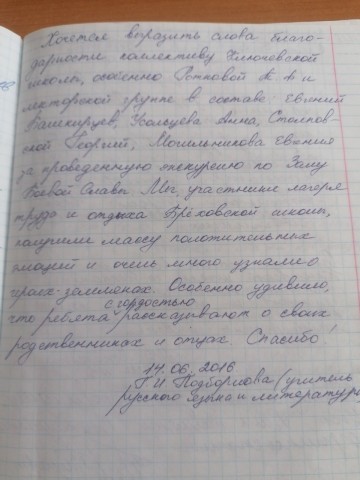 Хочется выразить слова благо-
дарности коллективу Ключевской
школы, особенно А и
лекторской группе в составе: Евгений
Башкирцев, Кольцева Анна,
Георгий, Могильникова Евгения
за проведенную экскурсию по Залу
Боевой Славы. Мы, участники лагеря
труда и отдыха Брёховской школы,
получили массу положительных
эмоций и очень много узнали о
героях-земляках. Особенно удивило,
с гордостью
что ребята рассказывают о своих
родственниках и отцах. Спасибо!
14.06.2016
Г И Подборнова (учитель
русского языка и литературы